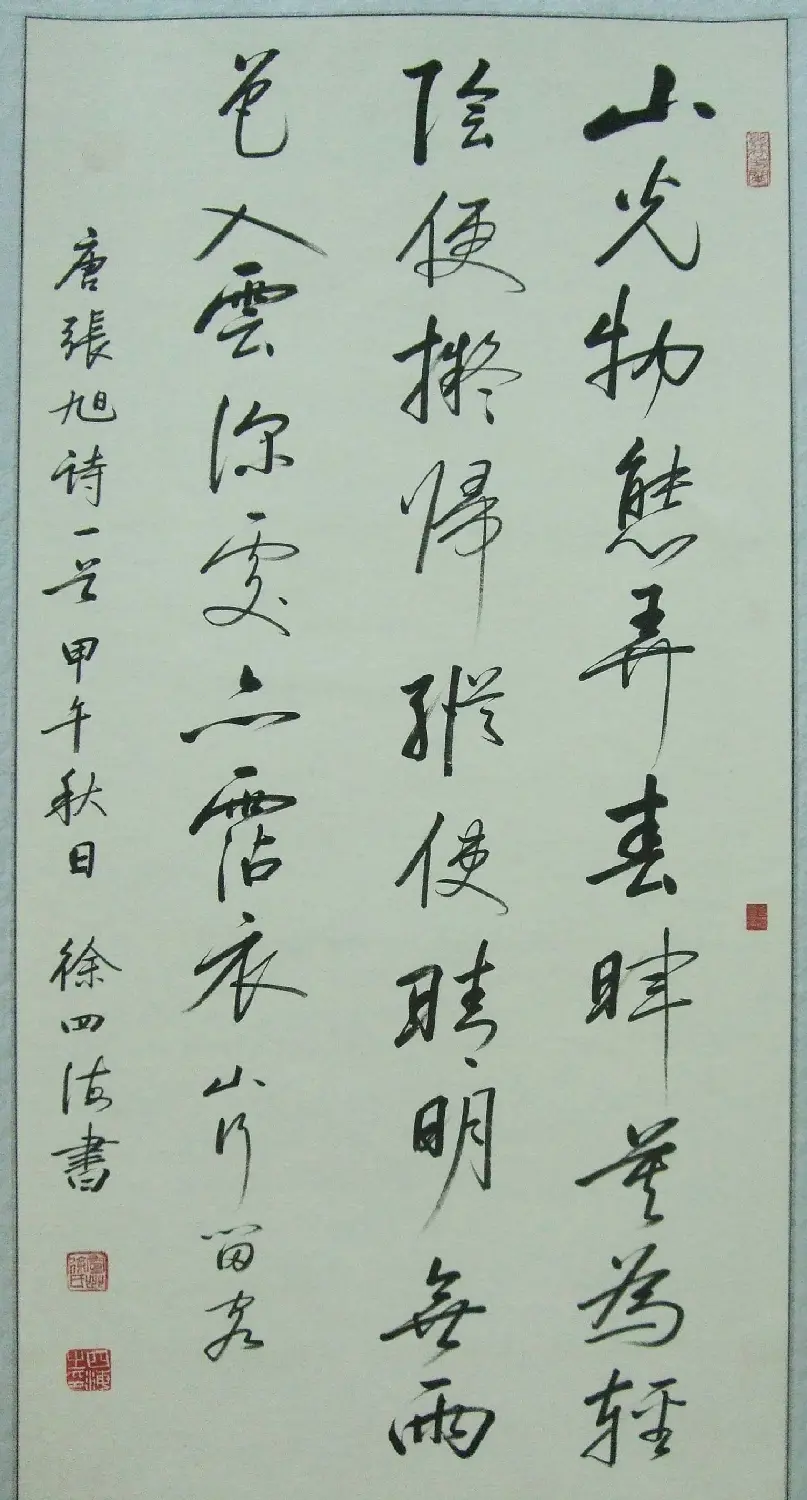 山光物態弄春暉莫為輕
陰便擬歸縱使晴明無雨
色入雲深處亦霑衣 山行留客
唐張旭詩一首甲午秋日 徐四海書